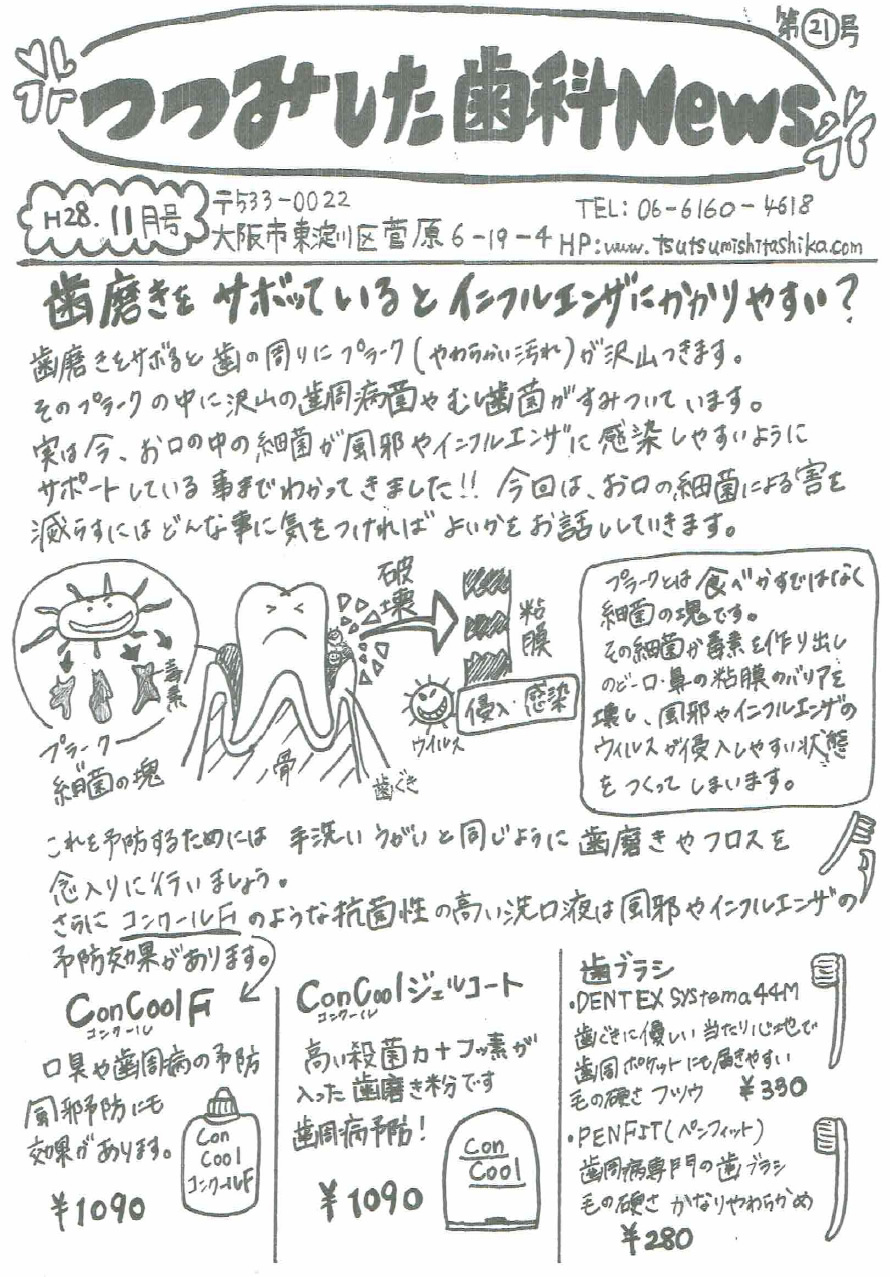 第㉑号
つつみした歯科News
H28.11月号
〒533-0022
大阪市東淀川区菅原6-19-4
TEL: 06-6160-4618
HP:www.tsutsumishitashika.com
歯磨きをサボッているとインフルエンザにかかりやすい?
歯磨きをサボると歯の周りにプラーク(やわらかい汚れ)が沢山つきます。
そのプラークの中に沢山の歯周病菌やむし歯菌がすみついています。
実は今、お口の中の細菌が風邪やインフルエンザに感染しやすいように
サポートしている事までわかってきました!! 今回は、お口の細菌による害を
減らすにはどんな事に気をつければよいかをお話ししていきます。
毒素
プラーク
細菌の塊
骨
歯ぐき
破壊
粘膜
ウイルス
侵入・感染
プラークとは食べかすではなく
細菌の塊です。
その細菌が毒素を作り出し
のど・口・鼻の粘膜のバリアを
壊し、風邪やインフルエンザの
ウィルスが侵入しやすい状態
をつくってしまいます。
これを予防するためには 手洗い うがいと同じように歯磨きやフロスを
念入りに行いましょう。
さらにコンクールFのような抗菌性の高い洗口液は風邪やインフルエンザの
予防効果があります。
ConCoolF
コンクール
口臭や歯周病の予防
風邪予防にも
効果があります。
¥1090
Con
Cool
コンクールF
ConCoolジェルコート
コンクール
高い殺菌力+フッ素が
入った歯磨き粉です
歯周病予防!
¥1090
Con
Cool
歯ブラシ
・DENT EX Systema 44M
歯ぐきに優しい当たり心地で
歯周ポケットにも届きやすい
毛の硬さ フツウ ¥330
・PENFIT(ペンフィット)
歯周病専門の歯ブラシ
毛の硬さ かなりやわらかめ
¥280